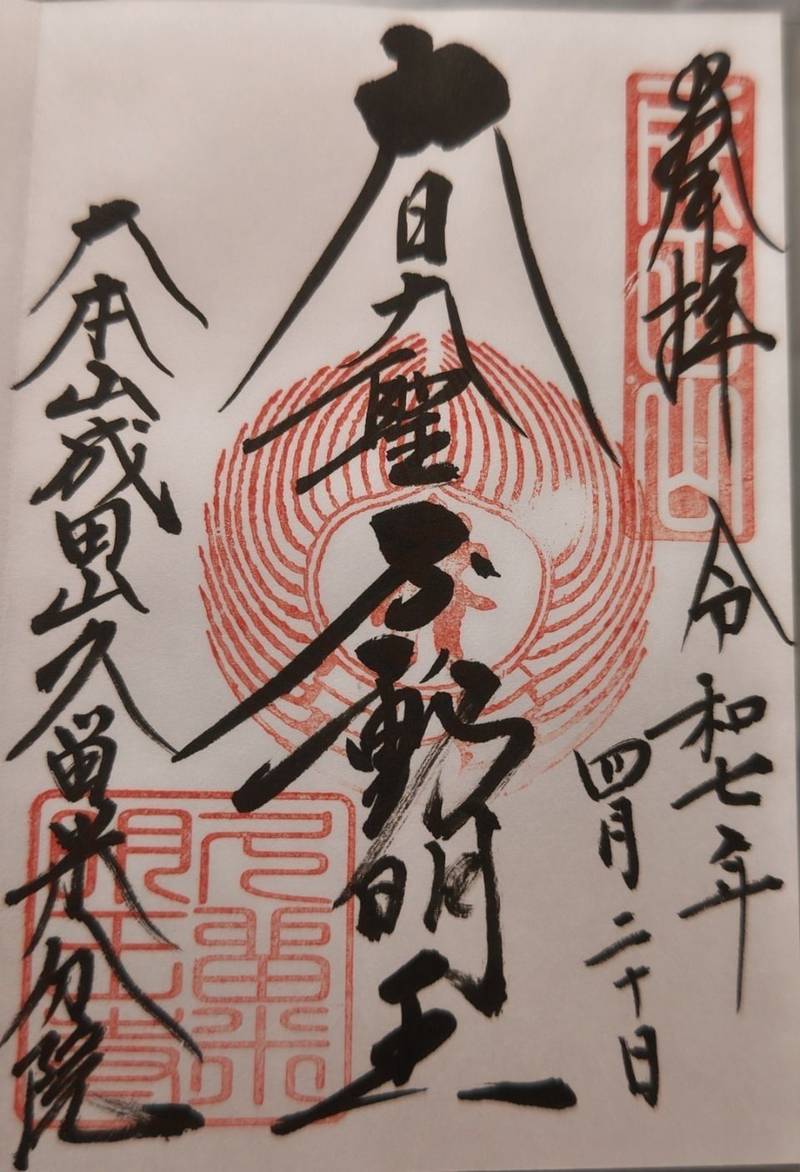 奉拝
成田山
令和七年
四月二十日
大日大聖不動明王
大本山成田山久留米分院
久留米
明王寺